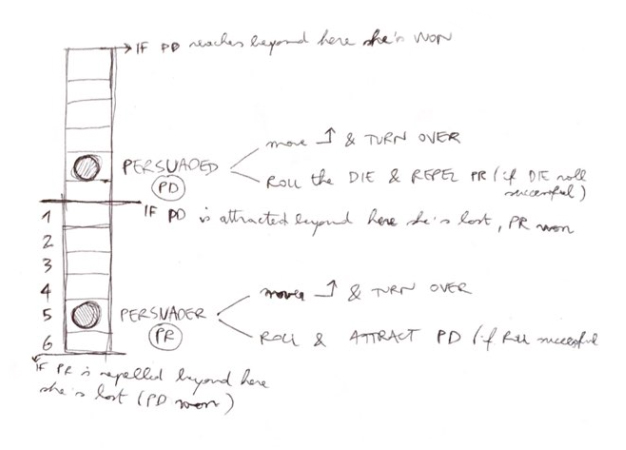 IF PD reaches beyond here she's WON
move ↑ & TURN OVER
PERSUADED
PD
ROLL the DIE & REPEL PR (if DIE roll
successful)
IF PD is attracted beyond here she's lost, PR won
1
2
3
4
5
6
move ↑ & TURN OVER
PERSUADER
PR
ROLL & ATTRACT PD (if Roll successful
IF PR is repelled beyond here
she's lost (PD won)